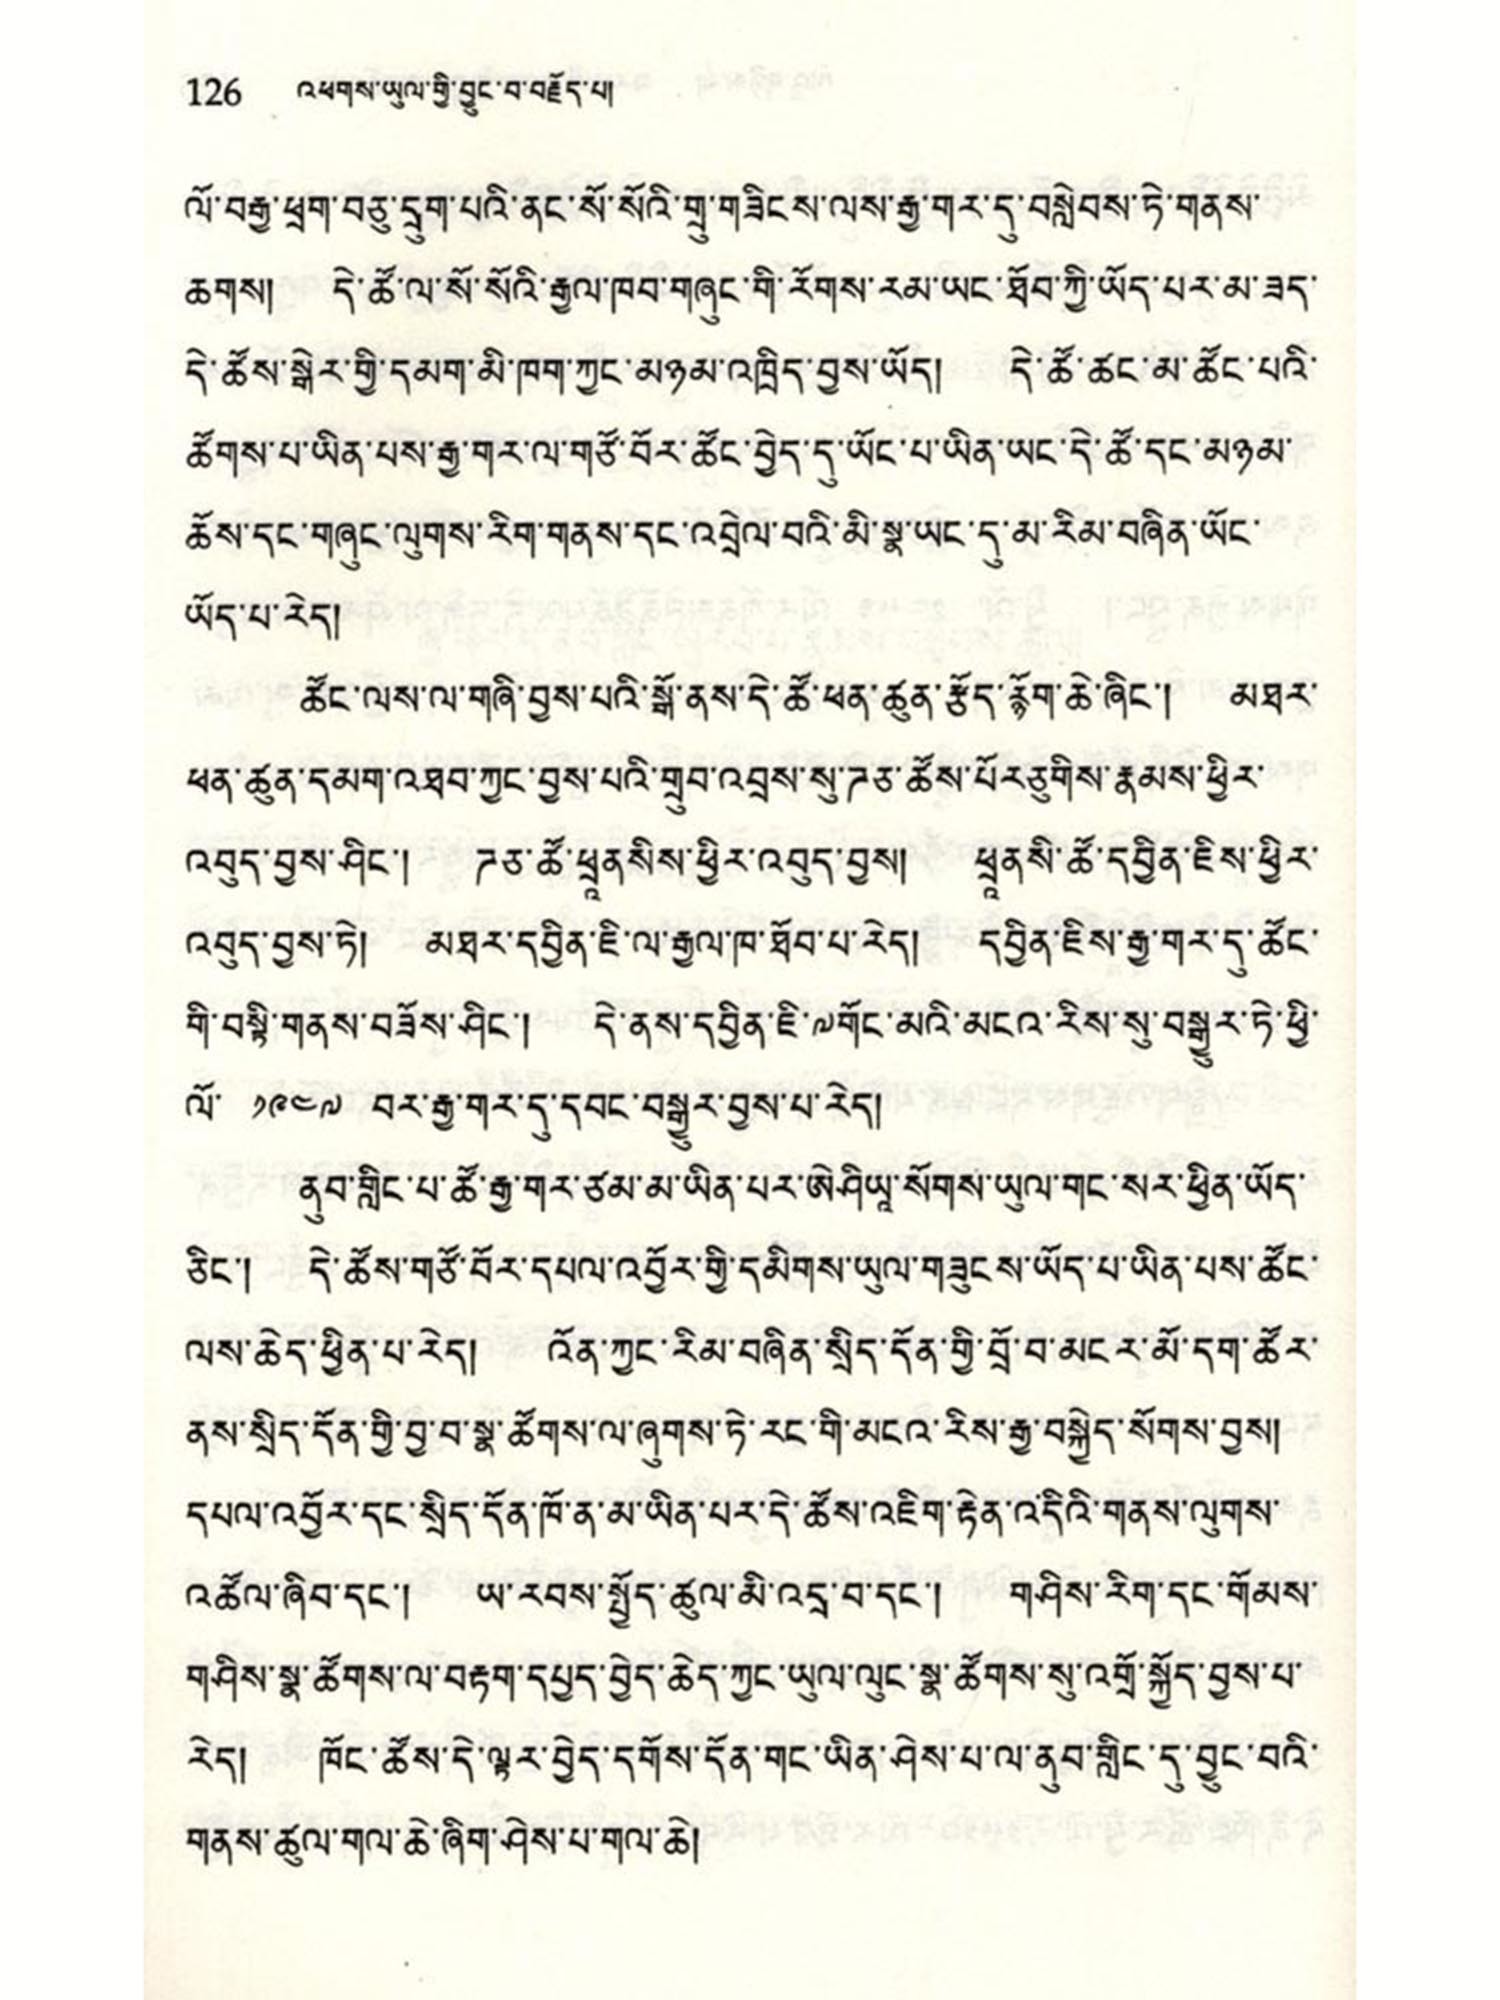 126 འཕགས་ཡུལ་གྱི་བྱུང་བ་བརྗོད་པ།
ལོ་བརྒྱ་ཕྲག་བཅུ་དྲུག་པའི་ནང་སོ་སོའི་གྲུ་གཟིངས་ལས་རྒྱ་གར་དུ་བསླེབས་ཏེ་གནས་
ཆགས། དེ་ཚོ་ལ་སོ་སོའི་རྒྱལ་ཁབ་གཞུང་གི་རོགས་རམ་ཡང་ཐོབ་ཀྱི་ཡོད་པར་མ་ཟད་
དེ་ཚོས་སྒེར་གྱི་དམག་མི་ཁག་ཀྱང་མཉམ་འཁྲིད་བྱས་ཡོད། དེ་ཚོ་ཚང་མ་ཚོང་པའི་
ཚོགས་པ་ཡིན་པས་རྒྱ་གར་ལ་གཙོ་བོར་ཚོང་བྱེད་དུ་ཡོང་པ་ཡིན་ཡང་དེ་ཚོ་དང་མཉམ་
ཆོས་དང་གཞུང་ལུགས་རིག་གནས་དང་འབྲེལ་བའི་མི་སྣ་ཡང་དུ་མ་རིམ་བཞིན་ཡོང་
ཡོད་པ་རེད།
ཚོང་ལས་ལ་གཞི་བྱས་པའི་སྒོ་ནས་དེ་ཚོ་ཕན་ཚུན་རྩོད་རྙོག་ཆེ་ཞིང་། མཐར་
ཕན་ཚུན་དམག་འཐབ་ཀྱང་བྱས་པའི་གྲུབ་འབྲས་སུ་ཌཅ་ཚོས་པོརཅུགིས་རྣམས་ཕྱིར་
འབུད་བྱས་ཤིང་། ཌཅ་ཚོ་ཕྲཱནསིས་ཕྱིར་འབུད་བྱས། ཕྲཱནསི་ཚོ་དབྱིན་ཇིས་ཕྱིར་
འབུད་བྱས་ཏེ། མཐར་དབྱིན་ཇི་ལ་རྒྱལ་ཁ་ཐོབ་པ་རེད། དབྱིན་ཇིས་རྒྱ་གར་དུ་ཚོང་
གི་བསྟི་གནས་བཟོས་ཤིང་། དེ་ནས་དབྱིན་ཇི་༧གོང་མའི་མངའ་རིས་སུ་བསྒྱུར་ཏེ་ཕྱི་
ལོ་ ༡༩༤༧ བར་རྒྱ་གར་དུ་དབང་བསྒྱུར་བྱས་པ་རེད།
ནུབ་གླིང་པ་ཚོ་རྒྱ་གར་ཙམ་མ་ཡིན་པར་ཨེ་ཤིཡཱ་སོགས་ཡུལ་གང་སར་ཕྱིན་ཡོད་
ཅིང་། དེ་ཚོས་གཙོ་བོར་དཔལ་འབྱོར་གྱི་དམིགས་ཡུལ་གཟུངས་ཡོད་པ་ཡིན་པས་ཚོང་
ལས་ཆེད་ཕྱིན་པ་རེད། འོན་ཀྱང་རིམ་བཞིན་སྲིད་དོན་གྱི་བྲོ་བ་མངར་མོ་དག་ཚོར་
ནས་སྲིད་དོན་གྱི་བྱ་བ་སྣ་ཚོགས་ལ་ཞུགས་ཏེ་རང་གི་མངའ་རིས་རྒྱ་བསྐྱེད་སོགས་བྱས།
དཔལ་འབྱོར་དང་སྲིད་དོན་ཁོ་ན་མ་ཡིན་པར་དེ་ཚོས་འཇིག་རྟེན་འདིའི་གནས་ལུགས་
འཚོལ་ཞིབ་དང་། ཡ་རབས་སྤྱོད་ཚུལ་མི་འདྲ་བ་དང་། གཤིས་རིག་དང་གོམས་
གཤིས་སྣ་ཚོགས་ལ་བརྟག་དཔྱད་བྱེད་ཆེད་ཀྱང་ཡུལ་ལུང་སྣ་ཚོགས་སུ་འགྲོ་སྐྱོད་བྱས་པ་
རེད། ཁོང་ཚོས་དེ་ལྟར་བྱེད་དགོས་དོན་གང་ཡིན་ཤེས་པ་ལ་ནུབ་གླིང་དུ་བྱུང་བའི་
གནས་ཚུལ་གལ་ཆེ་ཞིག་ཤེས་པ་གལ་ཆེ།